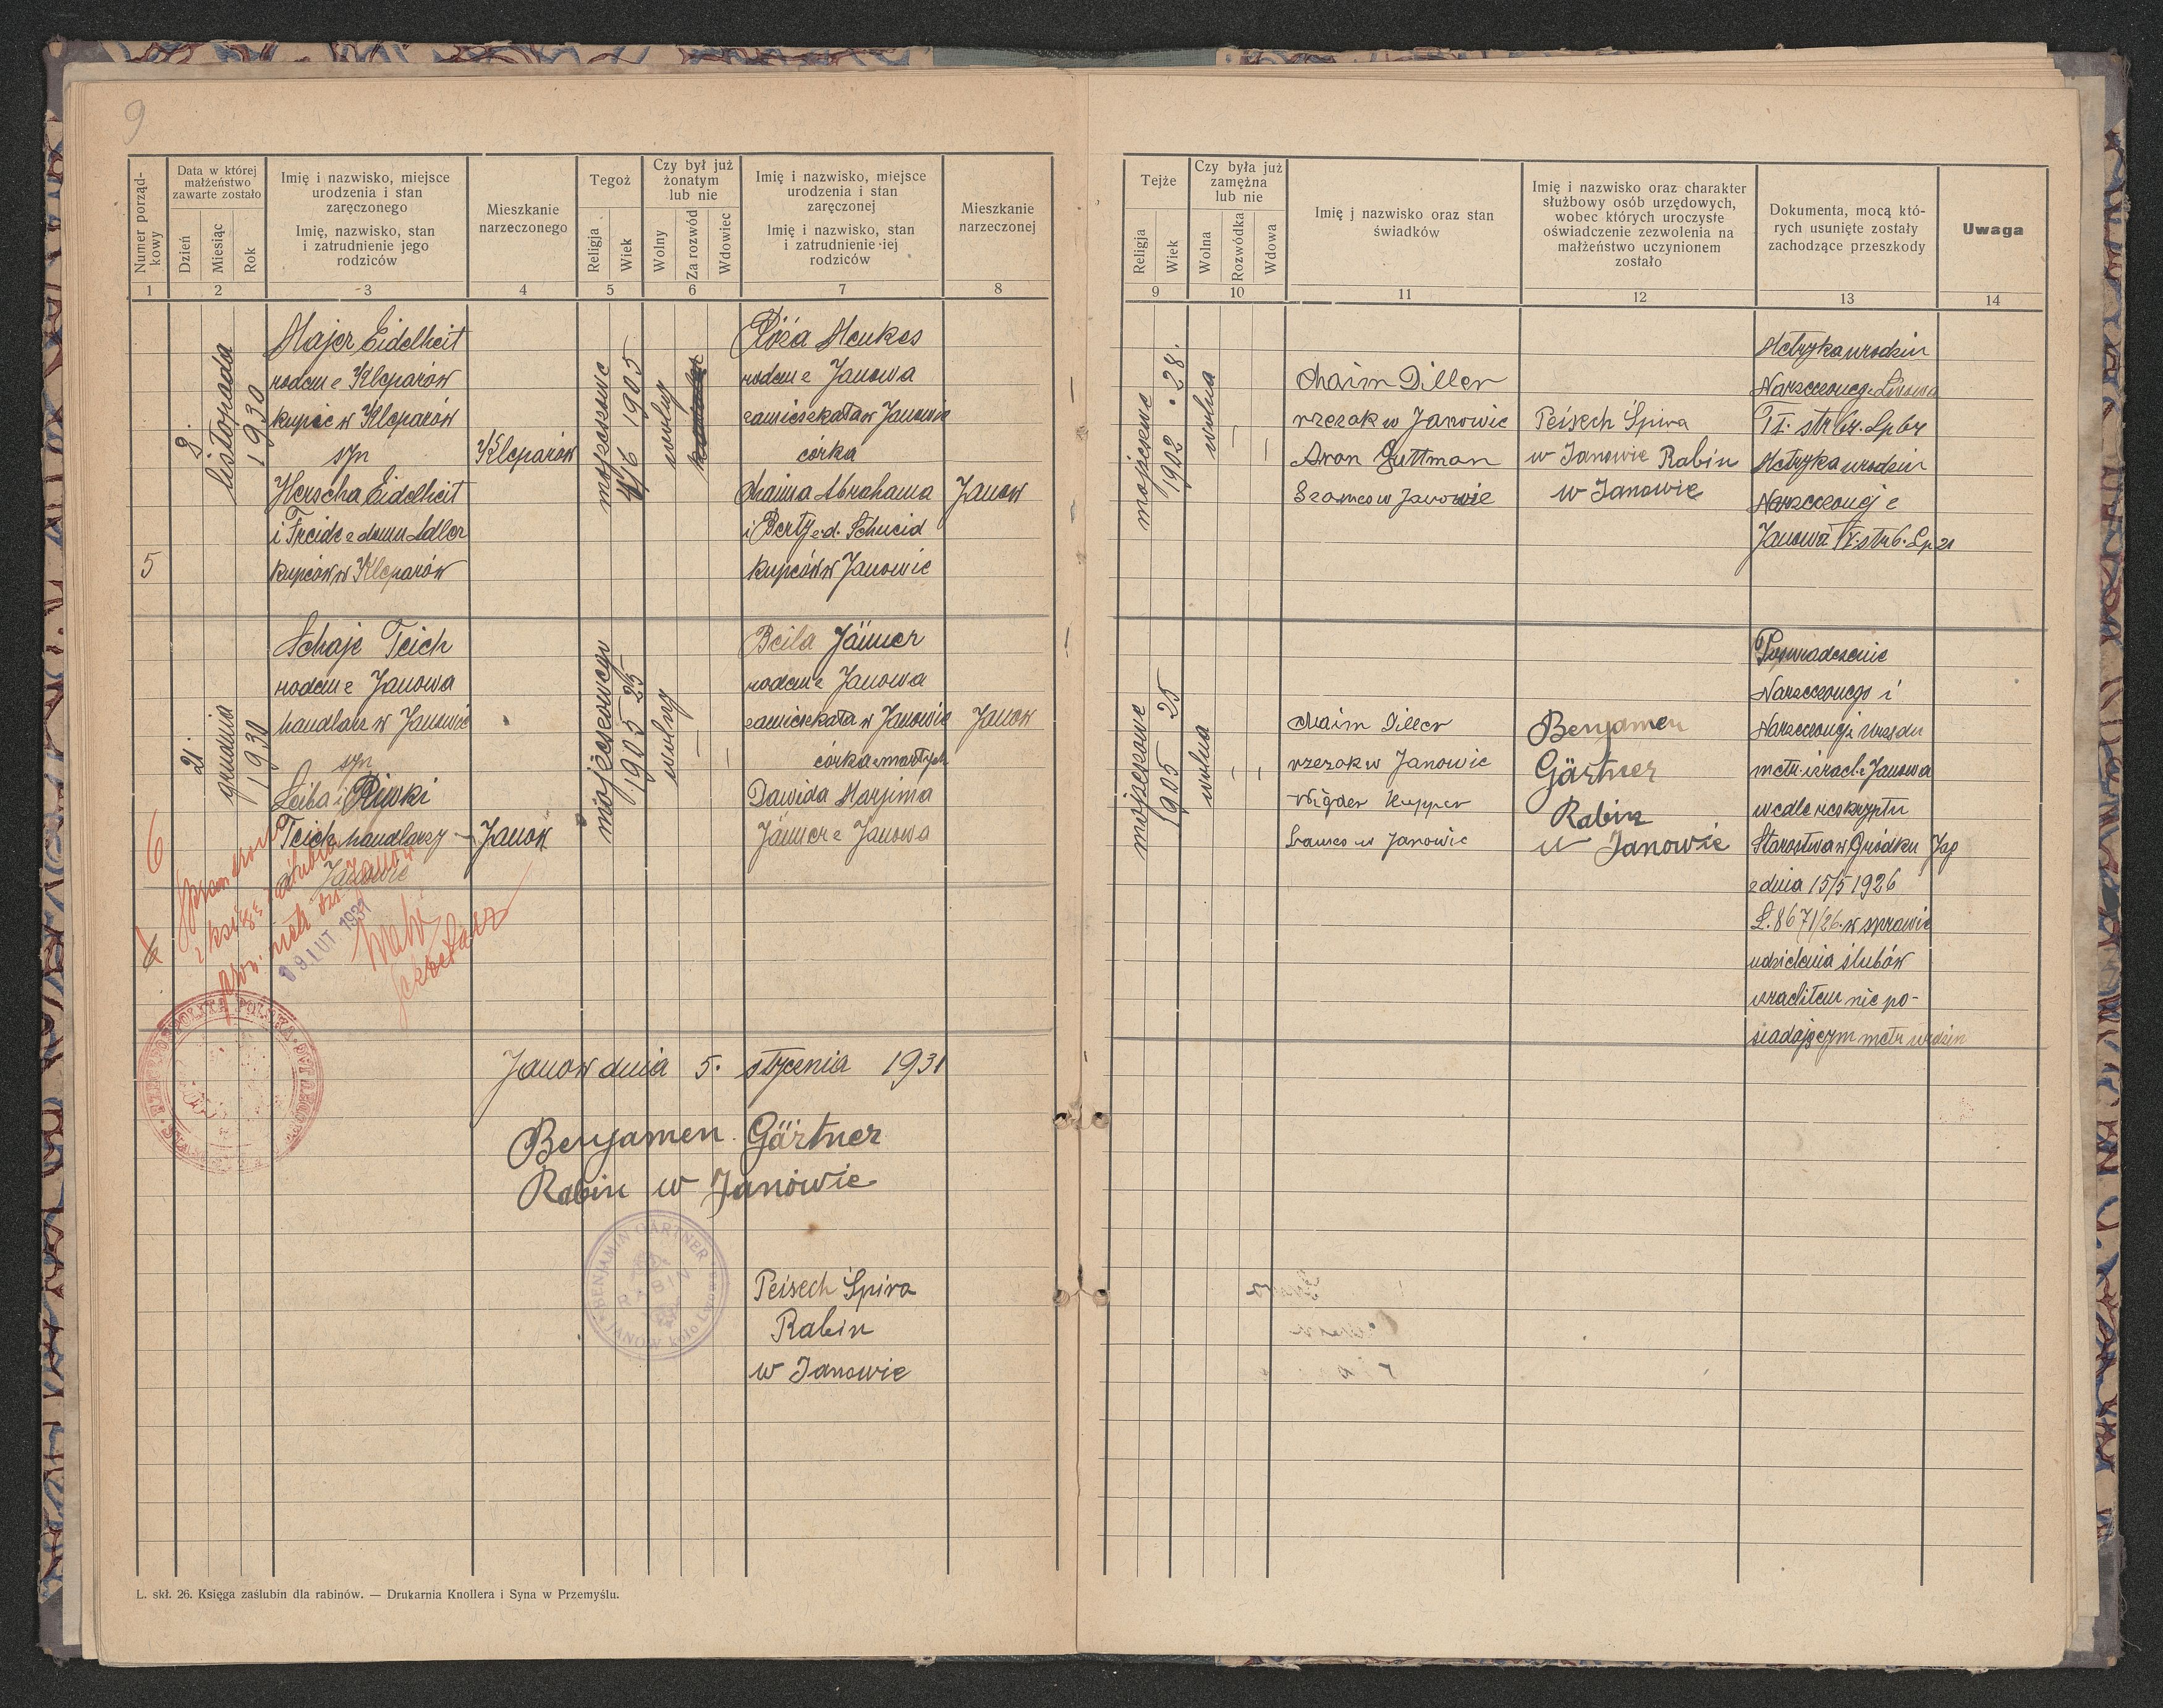 9
Numer porząd-
kowy
Data w której
małżeństwo
zawarte zostało
Dzień
Miesiąc
Rok
Imię i nazwisko, miejsce
urodzenia i stan
zaręczonego
Imię, nazwisko, stan
i zatrudnienie jego
rodziców
Mieszkanie
narzeczonego
Tegoż
Religja
Wiek
Czy był już
żonatym
lub nie
Wolny
Za rozwód
Wdowiec
Imię i nazwisko, miejsce
urodzenia i stan
zaręczonej
Imię i nazwisko, stan
i zatrudnienie iej
rodziców
Mieszkanie
narzeczonej
1 2 3 4 5 6 7 8
5
8.
listopada
1930
Majer Eidelheit
rodem z Kleparów
kupiec w Kleparów
syn
Herscha Eidelheit
i Freide z domu Adler
kupców w Kleparów
Kleparów
mojżeszowe
1905
wolny
Róża Menkes
rodem z Janowa
zamieszkała w Janowie
córka
Chaima Abrahama
i Berty z d. Schneid
kupców w Janowie
Janow
6
21.
grudnia
1930
Schaje Teich
rodem z Janowa
handlarz w Janowie
syn
Leiba i Riwki
Teich handlarzy
w Janowie
Janow
mojżeszowego
1905 25
wolny
Beila Jämer
rodem z Janowa
zamieszkała w Janowie
córka zmarłych
Dawida Marjima
Jämer z Janowa
Janow
09. LUT. 1931
RZECZPOSPOLITA POLSKA
Janow dnia 5. stycznia 1931
Benjamen Gärtner
Rabin w Janowie
BENJAMIN GÄRTNER
RABIN
JANÓW koło Lwowa
Peisech Spira
Rabin
w Janowie
L. skł. 26. Księga zaślubin dla rabinów. — Drukarnia Knollera i Syna w Przemyślu.
Tejże
Religja
Wiek
Czy była już
zamężna
lub nie
Wolna
Rozwódka
Wdowa
Imię j nazwisko oraz stan
świadków
Imię i nazwisko oraz charakter
służbowy osób urzędowych,
wobec których uroczyste
oświadczenie zezwolenia na
małżeństwo uczynionem
zostało
Dokumenta, mocą któ-
rych usunięte zostały
zachodzące przeszkody
Uwaga
9 10 11 12 13 14
mojżeszowe
1902 . 28.
wolna
Chaim Diller
rzezak w Janowie
Aron Guttman
Szames w Janowie
Peisech Spira
w Janowie Rabin
w Janowie
Metryka urodzin
Narzeczonego z Lwowa
Metryka urodzin
Narzeczonej z
Janowa
mojżeszowe
1905 25
wolna
Chaim Diller
rzezak w Janowie
Wigder Kupper
Szames w Janowie
Benjamen
Gärtner
Rabin
w Janowie
Poswiadczenie
Narzeczonego i
Narzeczonej z Urzędu
metr. izrael. z Janowa
wedle reskryptu
Starostwa w Gródku Jag
z dnia 15/5 1926
L. 8671/26. w sprawie
udzielenia ślubów
izraelitem nie po-
siadającym metr urodzin